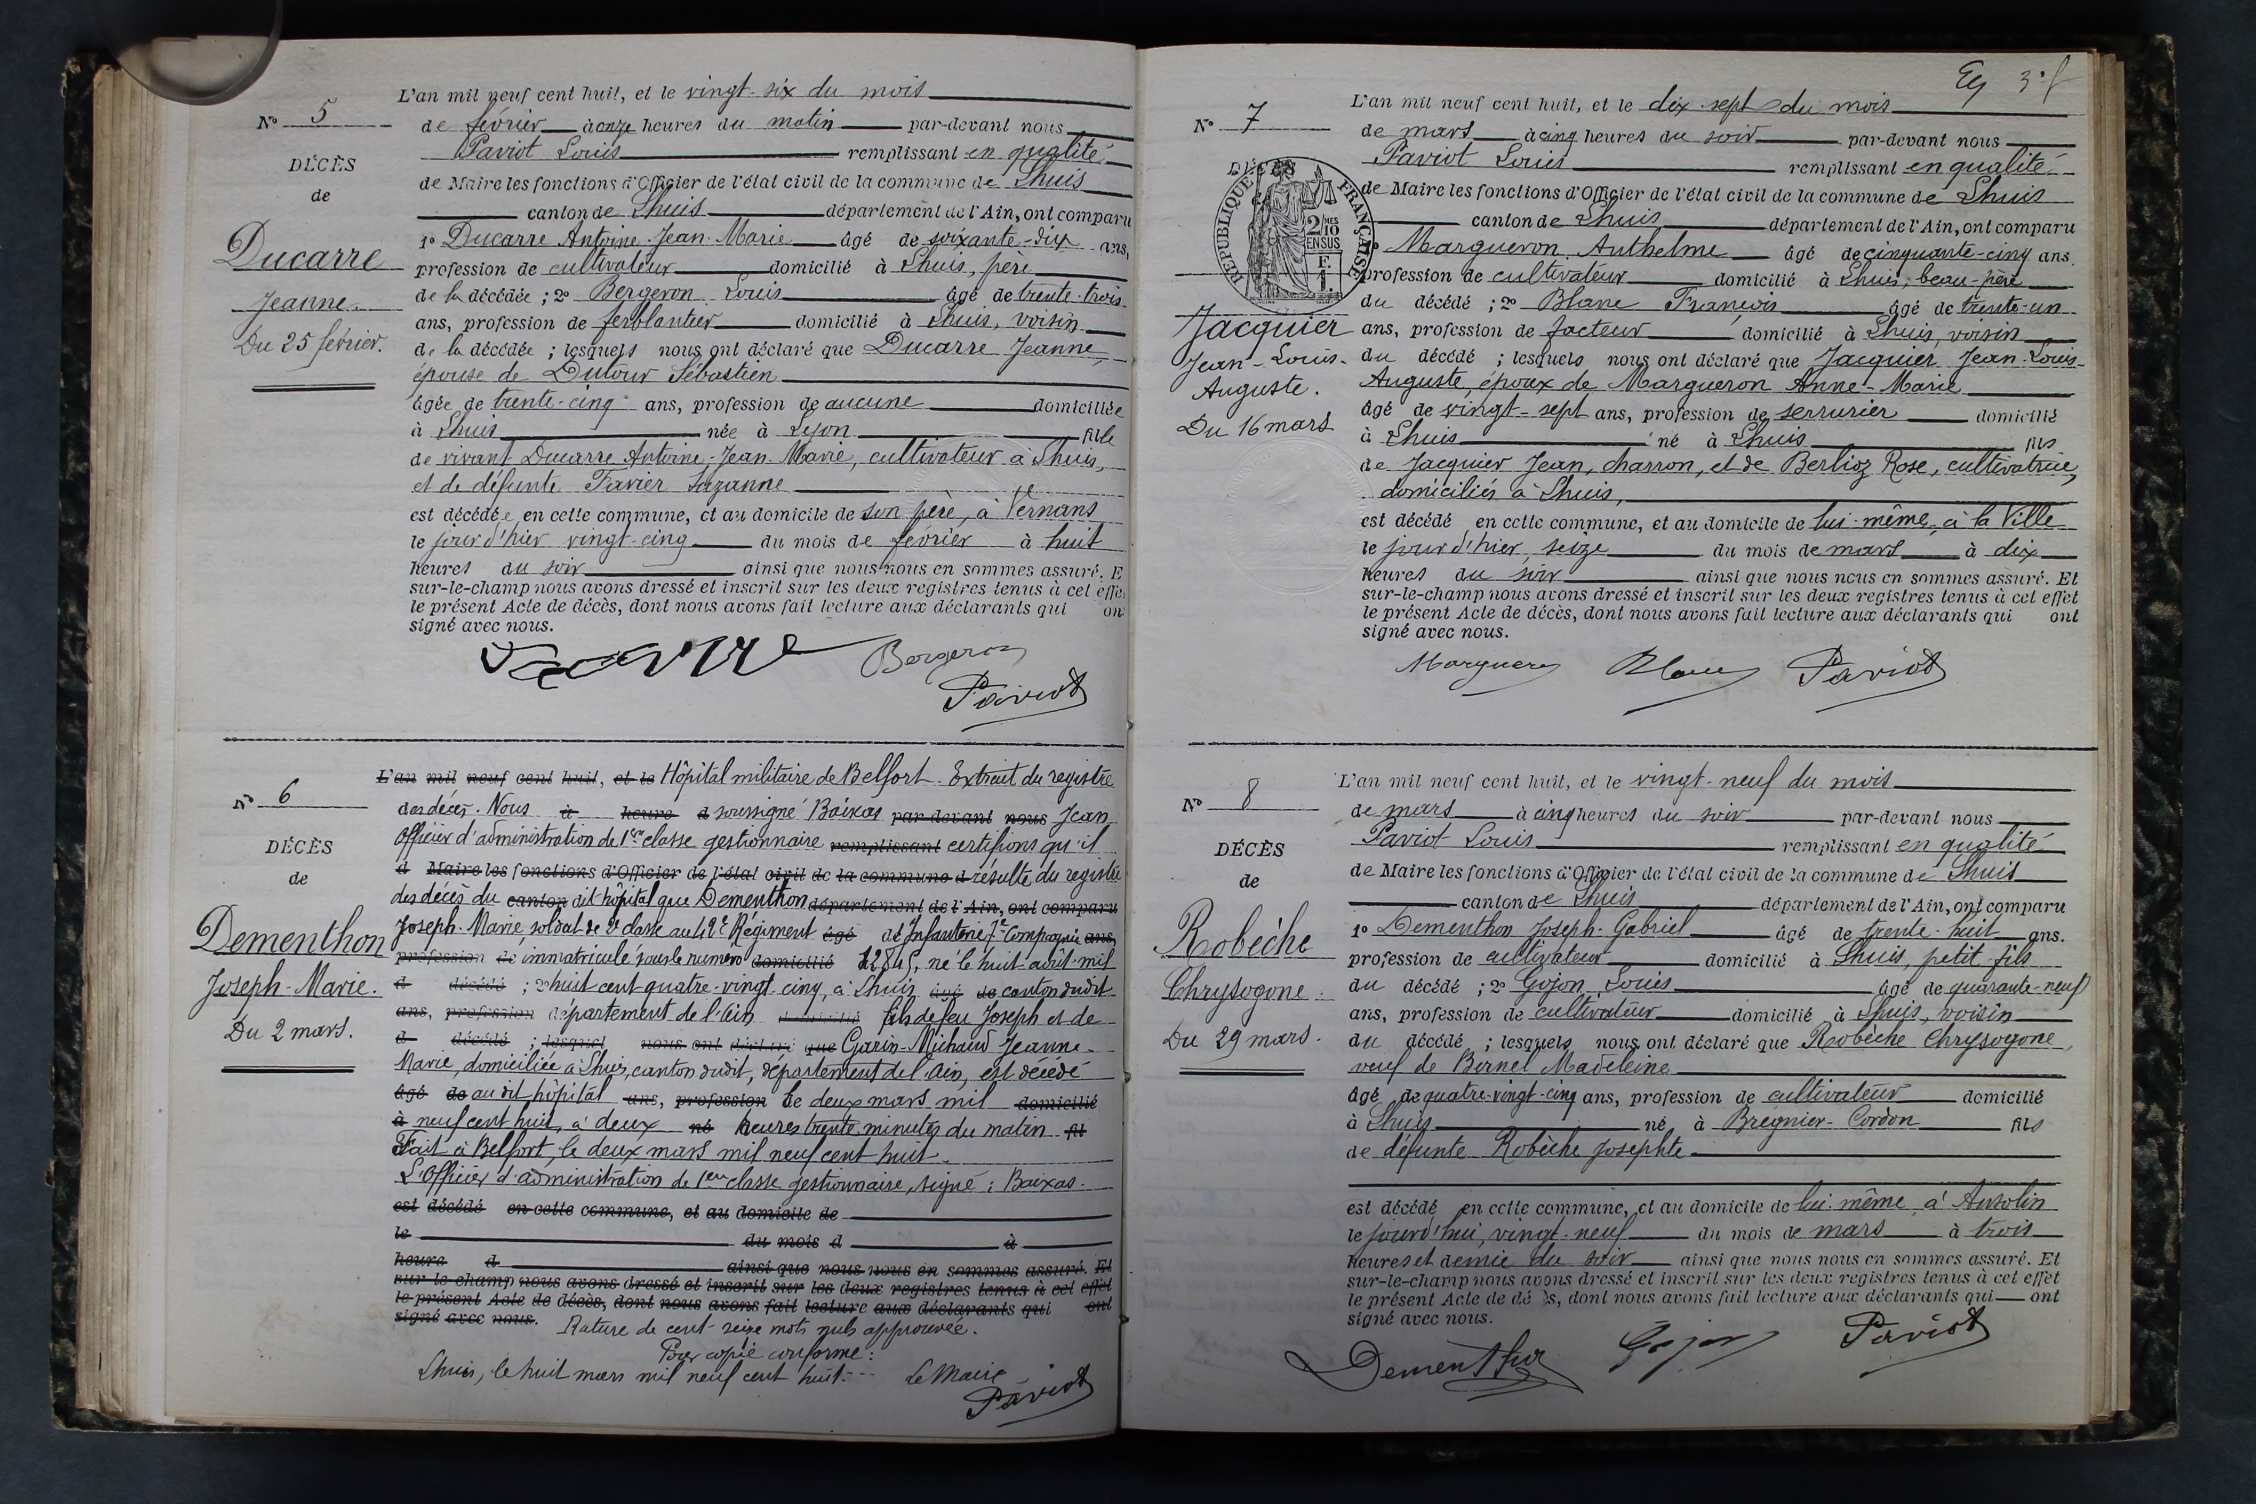 L'an mil neuf cent huit, et le vingt-six du mois
N° 5
de février à onze heures du matin par-devant nous
Paviot Louis remplissant en qualité
DÉCÈS
de Maire les fonctions d'Officier de l'état civil de la commune de Lhuis
de
canton de Lhuis département de l'Ain, ont comparu
Ducarre
1° Ducarre Antoine-Jean-Marie âgé de soixante-dix ans,
profession de cultivateur domicilié à Lhuis, père
Jeanne.
de la décédée ; 2° Bergeron Louis âgé de trente-trois
ans, profession de ferblantier domicilié à Lhuis, voisin
Du 25 février.
de la décédée ; lesquels nous ont déclaré que Ducarre Jeanne,
épouse de Dutour Sébastien
âgée de trente-cinq ans, profession de aucune domiciliée
à Lhuis née à Lyon fille
de vivant Ducarre Antoine-Jean-Marie, cultivateur à Lhuis,
et de défunte Favier Suzanne
est décédée en cette commune, et au domicile de son père, à Vernans
le jour d'hier vingt-cinq du mois de février à huit
heures du soir ainsi que nous nous en sommes assuré. E
sur-le-champ nous avons dressé et inscrit sur les deux registres tenus à cet effe
le présent Acte de décès, dont nous avons fait lecture aux déclarants qui on
signé avec nous.
Ducarre Bergeron
Paviot
L'an mil neuf cent huit, et le Hôpital militaire de Belfort. Extrait du registre
N° 6
des décès. Nous à heure d soussigné Baixas par-devant nous Jean
Officier d'administration de 1ère classe gestionnaire remplissant certifions qu'il
DÉCÈS
d Maire les fonctions d'Officier de l'état civil de la commune d résulte du registre
de
des décès du canton dit hôpital que Dementhon département de l'Ain, ont comparu
Dementhon
Joseph-Marie, soldat de 2e classe au 42e Régiment âgé d'Infanterie 7e Compagnie ans,
profession de immatriculé sous le numéro domicilié 12845, né le huit août mil
Joseph-Marie.
d décédé ; 2° huit cent quatre-vingt-cinq, à Lhuis âgé de canton dudit
ans, profession département de l'Ain domicilié fils de feu Joseph et de
Du 2 mars.
d décédé ; lesquel nous ont déclaré que Garin-Michaud Jeanne-
Marie, domiciliée à Lhuis, canton dudit, département de l'Ain, est décédé
âgé de au dit hôpital ans, profession le deux mars mil domicilié
à neuf cent huit, à deux né heures trente minutes du matin fil
Fait à Belfort, le deux mars mil neuf cent huit.
L'Officier d'administration de 1ère classe gestionnaire, signé : Baixas.
est décédé en cette commune, et au domicile de
le du mois d à
heure d ainsi que nous nous en sommes assuré. Et
sur-le-champ nous avons dressé et inscrit sur les deux registres tenus à cet effet
le présent Acte de décès, dont nous avons fait lecture aux déclarants qui ont
signé avec nous. Rature de cent-seize mots nuls approuvée.
Pour copie conforme :
Lhuis, le huit mars mil neuf cent huit. Le Maire
Paviot
3e f
L'an mil neuf cent huit, et le dix-sept du mois
N° 7
de mars à cinq heures du soir par-devant nous
Paviot Louis remplissant en qualité
DÉCÈS
RÉPUBLIQUE FRANÇAISE
2/10 MES EN SUS
F. 1.
de Maire les fonctions d'Officier de l'état civil de la commune de Lhuis
canton de Lhuis département de l'Ain, ont comparu
1° Margueron Anthelme âgé de cinquante-cinq ans
profession de cultivateur domicilié à Lhuis, beau-père
du décédé ; 2° Blanc François âgé de trente-un
Jacquier
ans, profession de facteur domicilié à Lhuis, voisin
Jean-Louis-
du décédé ; lesquels nous ont déclaré que Jacquier Jean-Louis-
Auguste.
Auguste, époux de Margueron Anne-Marie
âgé de vingt-sept ans, profession de serrurier domicilié
Du 16 mars
à Lhuis né à Lhuis fils
de Jacquier Jean, charron, et de Berlioz Rose, cultivatrice,
domiciliés à Lhuis,
est décédé en cette commune, et au domicile de lui-même, à la Ville
le jour d'hier, seize du mois de mars à dix
heures du soir ainsi que nous nous en sommes assuré. Et
sur-le-champ nous avons dressé et inscrit sur les deux registres tenus à cet effet
le présent Acte de décès, dont nous avons fait lecture aux déclarants qui ont
signé avec nous.
Margueron Blanc Paviot
L'an mil neuf cent huit, et le vingt-neuf du mois
N° 8
de mars à cinq heures du soir par-devant nous
Paviot Louis remplissant en qualité
DÉCÈS
de Maire les fonctions d'Officier de l'état civil de la commune de Lhuis
de
canton de Lhuis département de l'Ain, ont comparu
Robèche
1° Dementhon Joseph-Gabriel âgé de trente-huit ans.
profession de cultivateur domicilié à Lhuis, petit-fils
Chrysogone.
du décédé ; 2° Gojon Louis âgé de quarante-neuf
ans, profession de cultivateur domicilié à Lhuis, voisin
Du 29 mars.
du décédé ; lesquels nous ont déclaré que Robèche Chrysogone,
veuf de Birnel Madeleine
âgé de quatre-vingt-cinq ans, profession de cultivateur domicilié
à Lhuis né à Brégnier-Cordon fils
de défunte Robèche Josephte
est décédé en cette commune, et au domicile de lui-même à Ansolin
le jourd'hui, vingt-neuf du mois de mars à trois
heures et demie du soir ainsi que nous nous en sommes assuré. Et
sur-le-champ nous avons dressé et inscrit sur les deux registres tenus à cet effet
le présent Acte de dé s, dont nous avons fait lecture aux déclarants qui ont
signé avec nous.
Dementhon Gojon Paviot